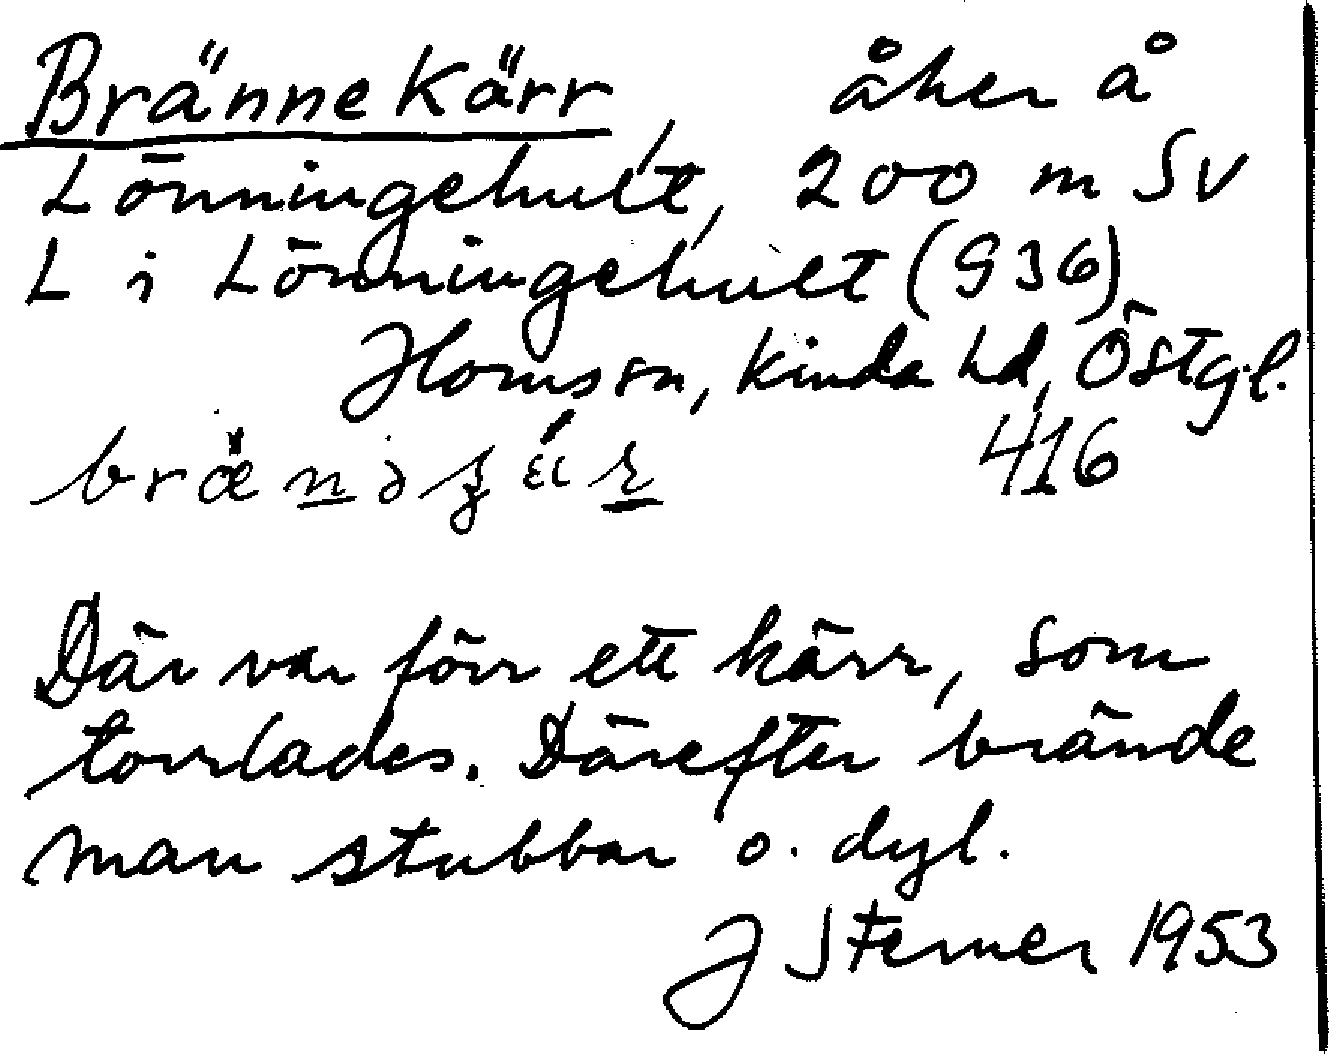 Brännekärr, åker å
Lönningehult, 200 m SV
L i Lönningehult (936)
Horns sn, Kinda hd, Östgl.
416
Där var förr ett kärr, som
torrlades. Därefter brände
man stubbar o. dyl.
J Sterner 1953